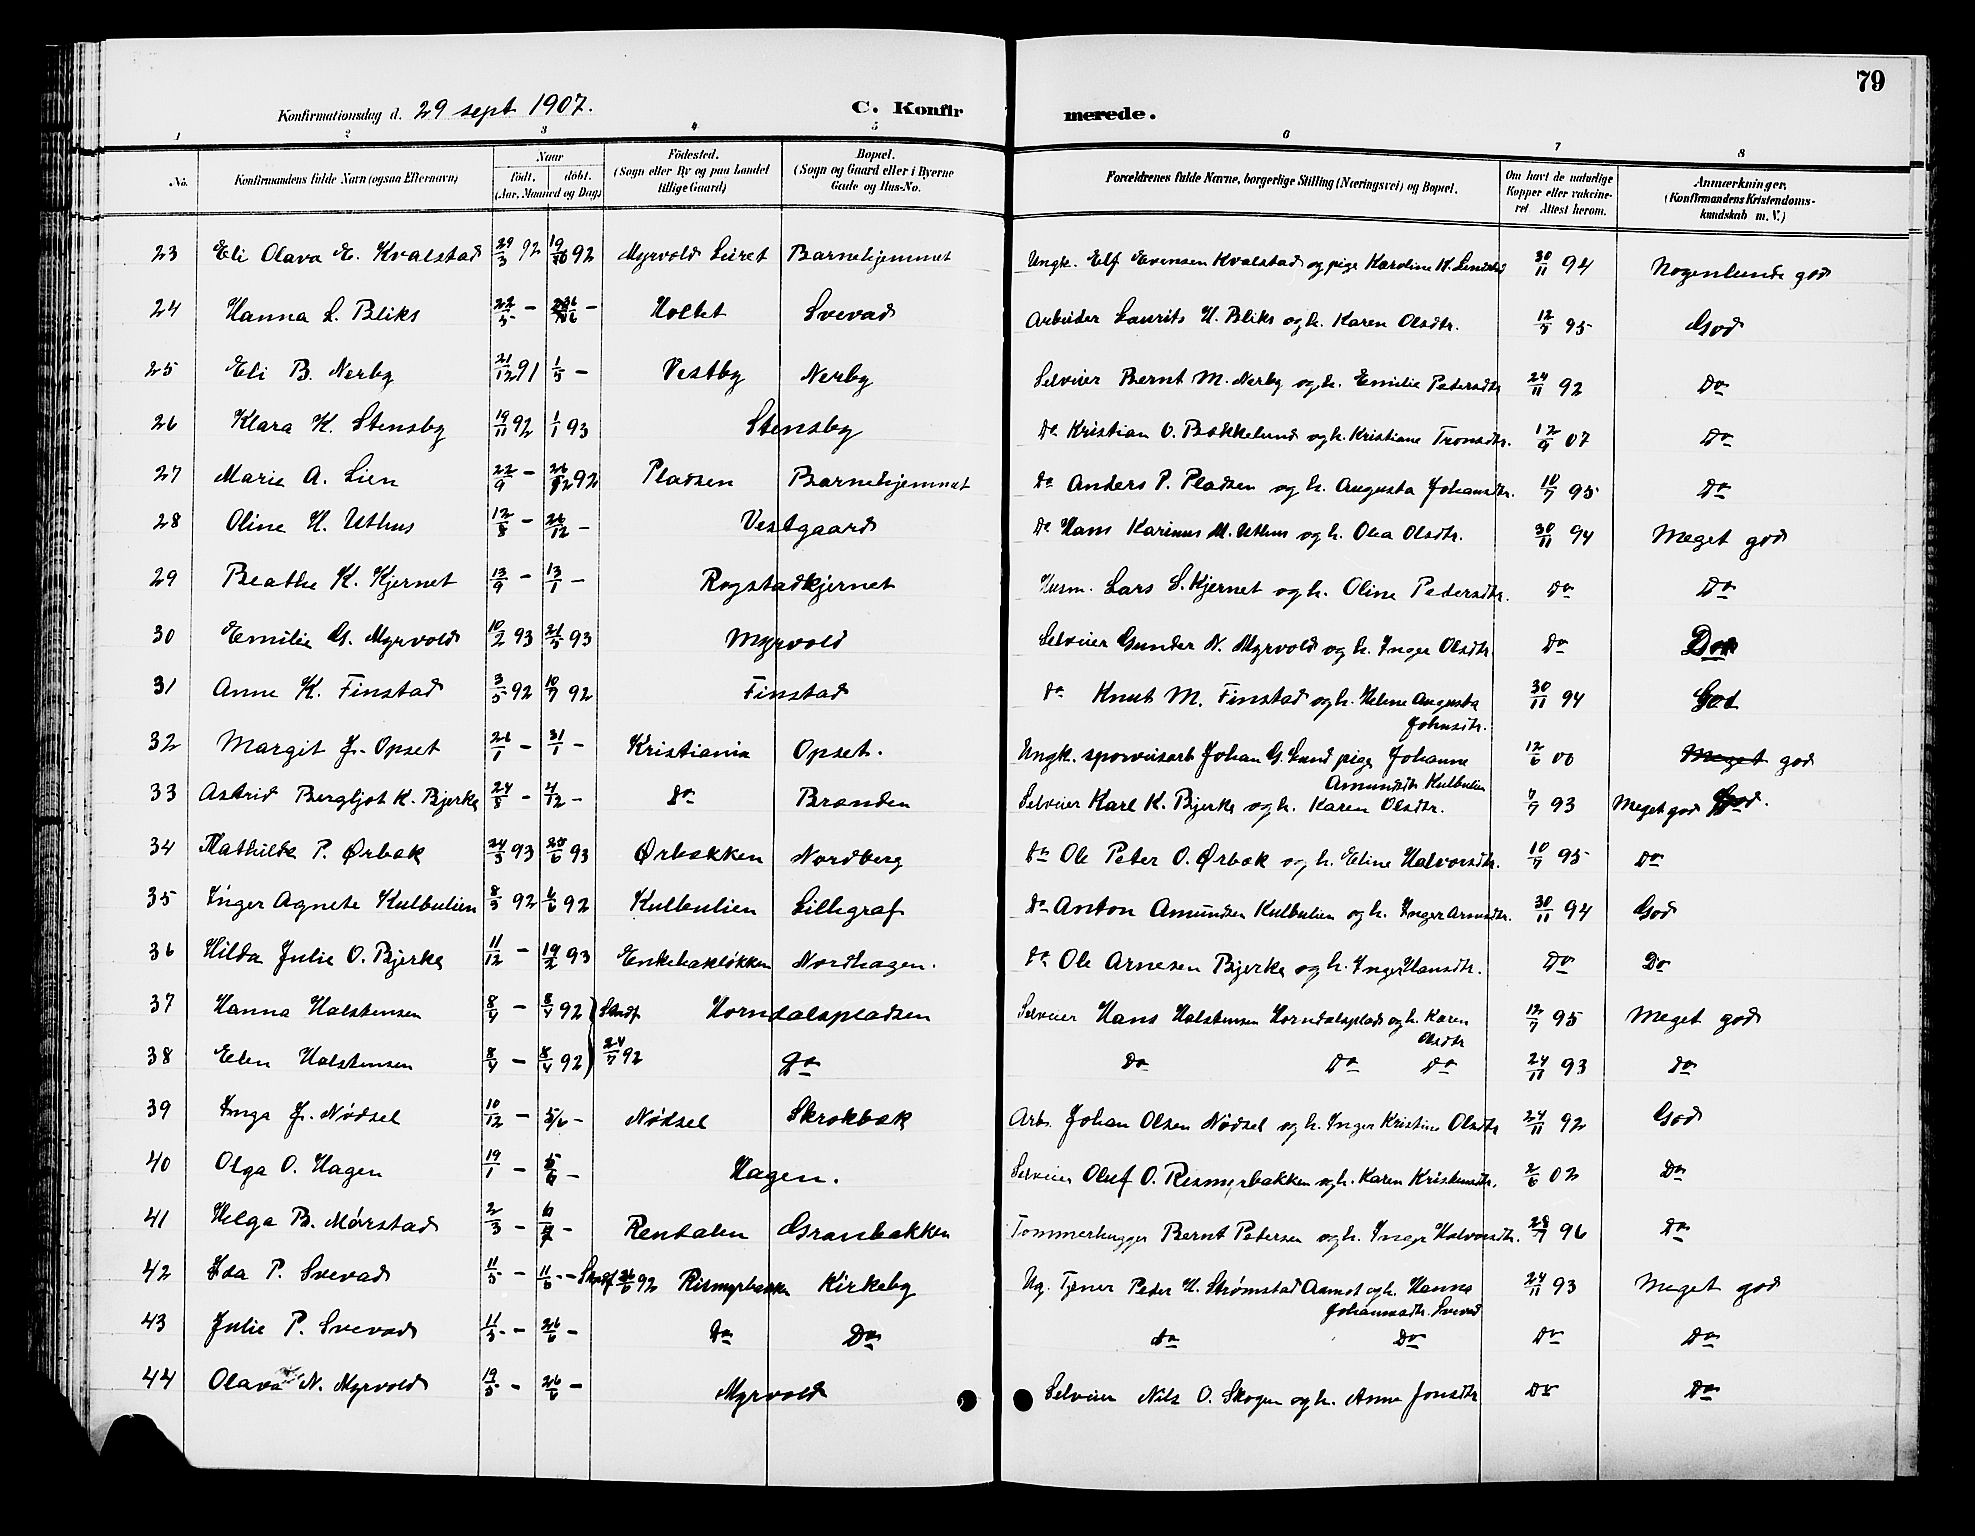 79
Konfirmationsdag d. 29 sept 1907. C. Konfirmerede.
1 2 3 4 5 6 7 8
No. Konfirmandens fulde Navn (ogsaa Efternavn) Naar født. døbt. (Aar, Maaned og Dag) Fødested. (Sogn eller By og paa Landet tillige Gaard) Bopæl. (Sogn og Gaard eller i Byerne Gade og Hus-No. Forældrenes fulde Navne, borgerlige Stilling (Næringsvei) og Bopæl. Om havt de naturlige Kopper eller vakcineret Attest herom. Anmærkninger. (Konfirmandens Kristendomskundskab m. V.)
23 Eli Olava E. Kvalstad 29/3 92 19/10 92 Myrvold Barnehjemmet Ungk. Elf Evensen Kvalstad og pige Karoline K. 30/11 94 Nogenlunde god
24 Hanna L. Bliks 22/5 - 26/6 - Holtet Svevad Arbeider Laurits H. Bliks og h. Karen Olsdtr. 12/7 95 God
25 Eli B. Nerby 21/12 91 1/5 - Vestby Nerby Selveier Bernt M. Nerby og h. Emilie Pedersdtr 24/11 92 Do
26 Klara K. Stensby 19/11 92 1/1 93 Stensby Do Kristian O. Bækkelund og h. Kristiane Tronsdtr. 12/9 07 Do
27 Marie A. Lien 22/9 - 26/12 92 Pladsen Barnehjemmet Do Anders P. Pladsen og h. Augusta Johansdtr. 10/7 95 Do
28 Oline H. Uthus 12/8 - 26/12 - Vestgaard Do Hans Karinus M. Uthus og h. Olea Olsdtr. 30/11 94 Meget god
29 Beathe K. Kjernet 13/9 - 13/1 - Rogstadkjernet Husm. Lars S. Kjernet og h. Oline Pedersdtr. Do Do
30 Emilie G. Myrvold 10/2 93 21/5 93 Myrvold Selveier Gunder N. Myrvold og h. Inger Olsdtr. Do Do
31 Anne K. Finstad 3/5 92 10/7 92 Finstad Do Knut M. Finstad og h. Helene Augusta Johnsdtr. 30/11 94 God
32 Margit J. Opset 26/1 - 31/1 - Kristiania Opset. Ungk. sporveisarb Johan G. Lund pige Johanne Amundsdtr Kulbulien 12/6 00 Meget god
33 Astrid Bergljot K. Bjerke 24/8 - 4/12 - Do Branden Selveier Karl K. Bjerke og h. Karen Olsdtr. 7/7 93 Meget god God.
34 Mathilde P. Ørbæk 24/3 93 25/6 93 Ørbækken Nordberg Do Ole Peter O. Ørbæk og h. Eline Halvorsdtr. 10/7 95 Do
35 Inger Agnete Kulbulien 8/3 92 6/6 92 Kulbulien Lillegraf Do Anton Amundsen Kulbulien og h. Inger Arnesdtr. 30/11 94 God
36 Hilda Julie O. Bjerke 11/12 - 19/2 93 Enkebakløkken Nordhagen. Do Ole Arnesen Bjerke og h. Inger Hansdtr. Do Do
37 Hanna Halstensen 8/4 - 8/4 92 Stadf Horndalspladsen Selveier Hans Halstensen Horndalsplads og h. Karen Olsdtr 12/7 95 Meget god
38 Elen Halstensen 8/4 - 8/4 92 24/7 92 Do Do Do Do 24/11 93 Do
39 Inga J. Nødsel 10/12 - 5/6 - Nødsel Skrokbæk Arb. Johan Olsen Nødsel og h. Inger Kristine Olsdtr 24/11 92 God
40 Olga O. Hagen 19/1 - 5/6 - Hagen. Selveier Oluf O. Rismyrbakken og h. Karen Kristensdtr. 2/6 02 Do
41 Helga B. Mørstad 2/3 - Rendalen Granbakken Tømmerhugger Bernt Pedersen og h. Inger Halvorsdtr. 28/7 96 Do
42 Ida P. Svevad 11/5 - 11/5 - Stadf 26/6 92 Rismyrbakken Kirkeby Ug. Tjener Peder H. Strømstad Aamot og h. Hanna Johannesdtr. Svevad 24/11 93 Meget god
43 Julie P. Svevad 11/5 - 26/6 - Do Do Do Do Do Do
44 Olava N. Myrvold 19/5 - 26/6 - Myrvold Selveier Nils O. Skogen og h. Anne Jonsdtr Do Do